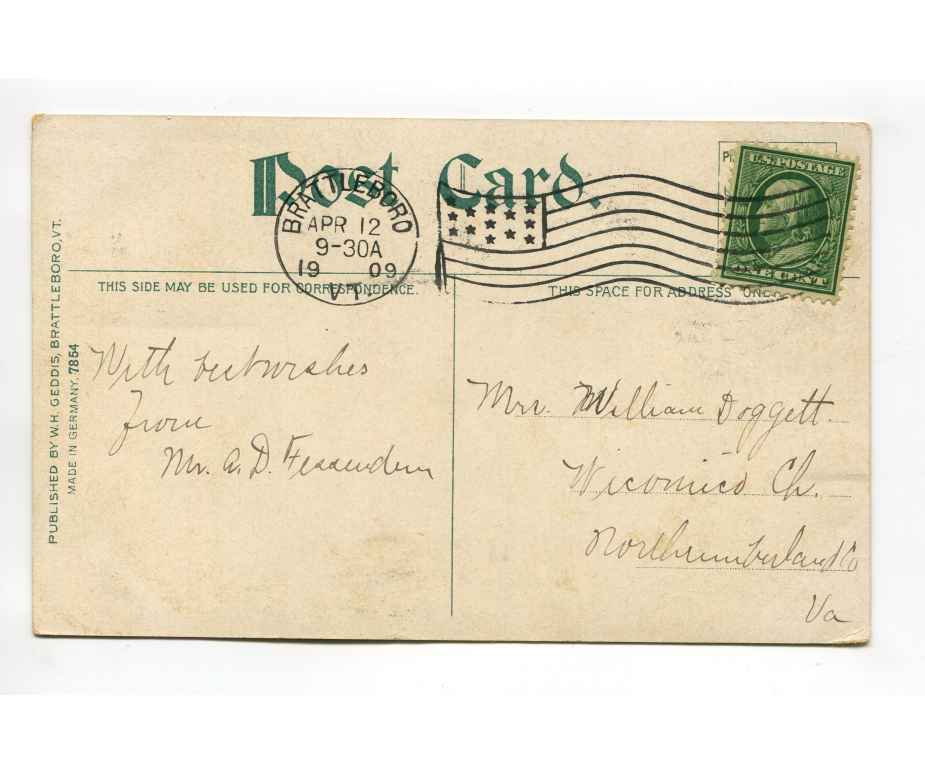 Post Card.
BRATTLEBORO
APR 12
9-30A
19 09
VT.
U.S. POSTAGE
ONE CENT
THIS SIDE MAY BE USED FOR CORRESPONDENCE.
THIS SPACE FOR ADDRESS
PUBLISHED BY W.H. GEDDIS, BRATTLEBORO, VT.
MADE IN GERMANY. 7854
With best wishes
from
Mr. A. D. Fessenden
Mrs. William Doggett.
Wicomico Ch.
Northumberland Co
Va